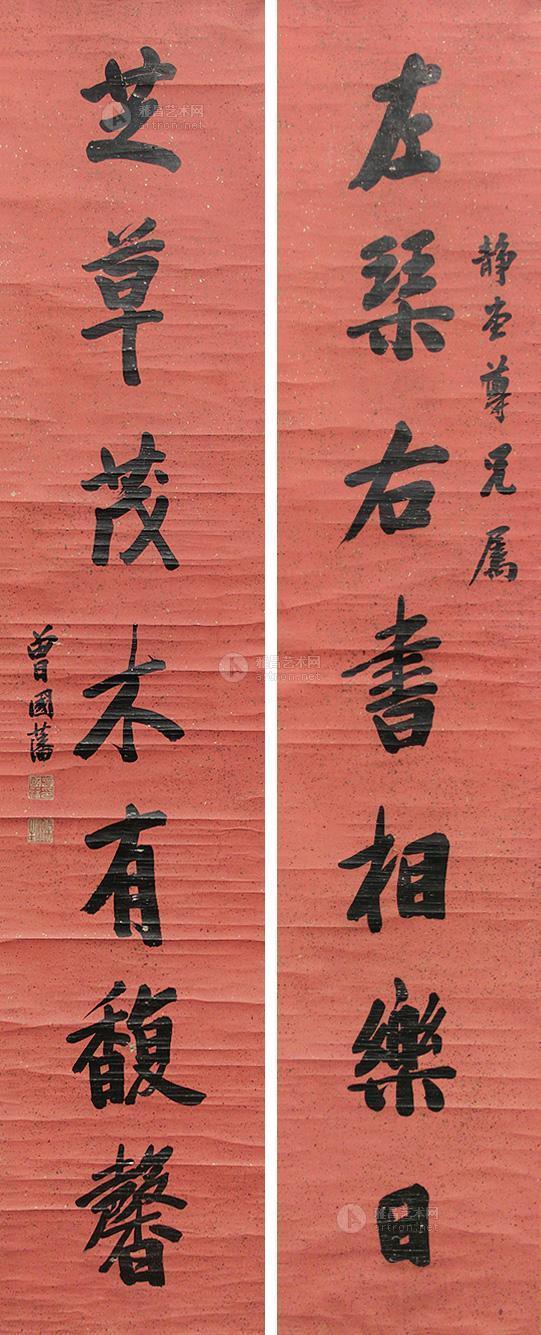 静堂尊兄属
左琴右書相樂日
芝草茂木有馥馨
曾國藩
雅昌艺术网
artron.net
雅昌艺术网
artron.net
雅昌艺术网
artron.net